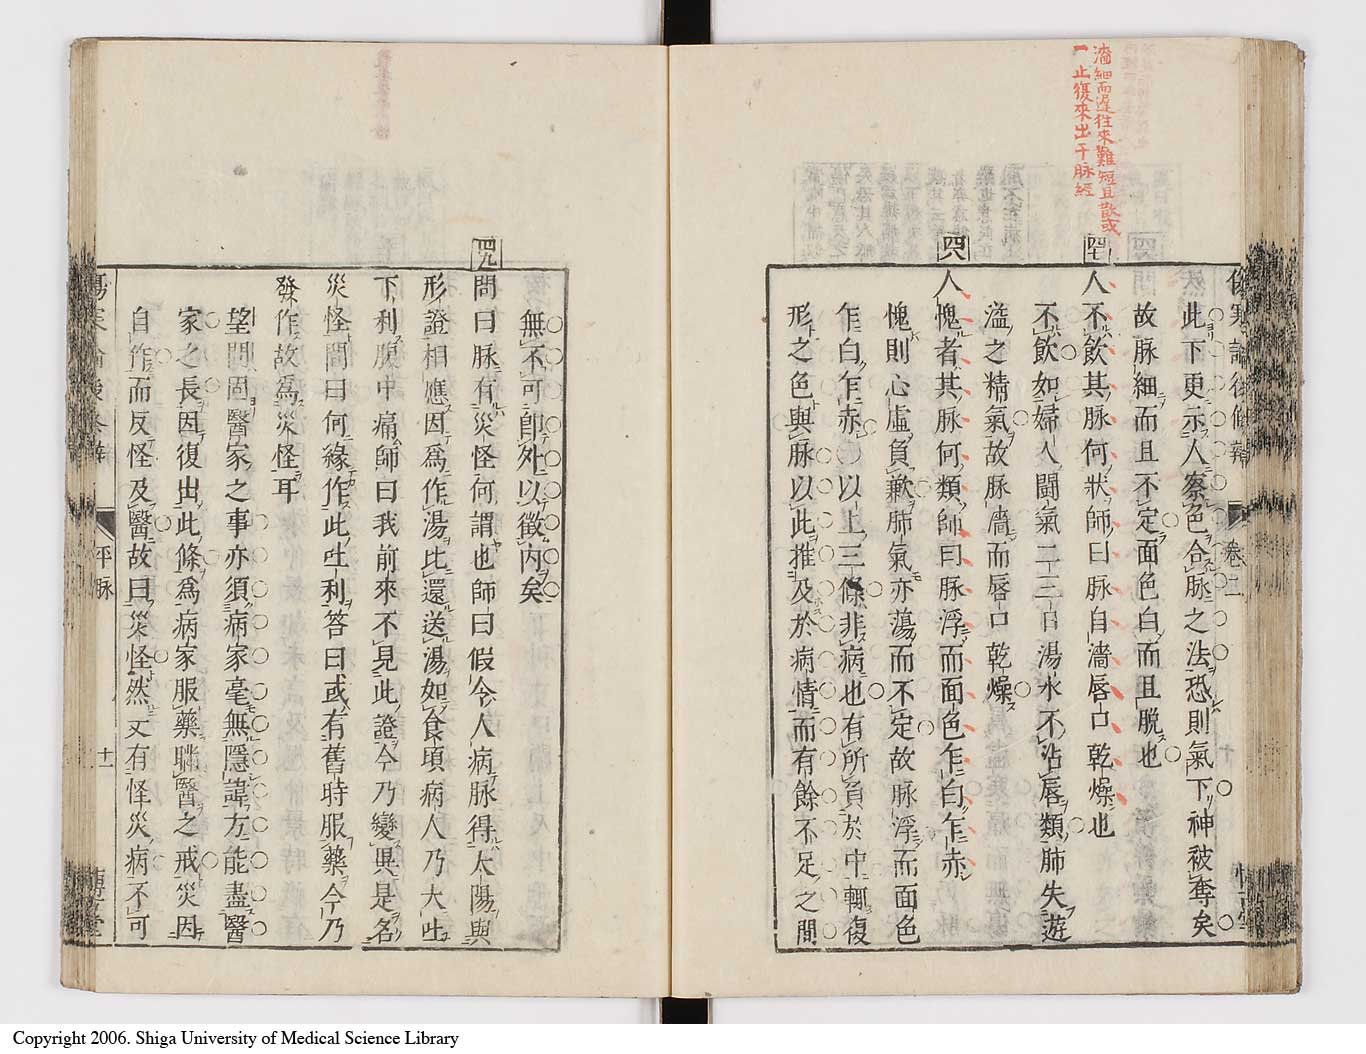 濇細而遲往來難短且散或
一止復來出于脉經
傷寒論後條辨
卷二
此下更示人察色合脉之法恐則氣下神被奪矣
故脉細而且不定面色白而且脫也
四七
人不飲其脉何狀師曰脉自濇唇口乾燥也
不飲如婦人鬪氣二三日湯水不沾唇類肺失遊
溢之精氣故脉濇而唇口乾燥
四八
人愧者其脉何類師曰脉浮而面色乍白乍赤
愧則心虛負歉肺氣亦蕩而不定故脉浮而面色
乍白乍赤以上三條非病也有所負於中輙復
形之色與脉以此推及於病情而有餘不足之間
無不可卽外以徵內矣
四九
問曰脉有災怪何謂也師曰假令人病脉得太陽與
形證相應因爲作湯比還送湯如食頃病人乃大吐
下利腹中痛師曰我前來不見此證今乃變異是名
災怪問曰何緣作此吐利答曰或有舊時服藥今乃
發作故爲災怪耳
望問固醫家之事亦須病家毫無隱諱方能盡醫
家之長因復出此條爲病家服藥聮醫之戒災因
自作而反怪及醫故曰災怪然又有怪災病不可
平脉
十一
Copyright 2006. Shiga University of Medical Science Library